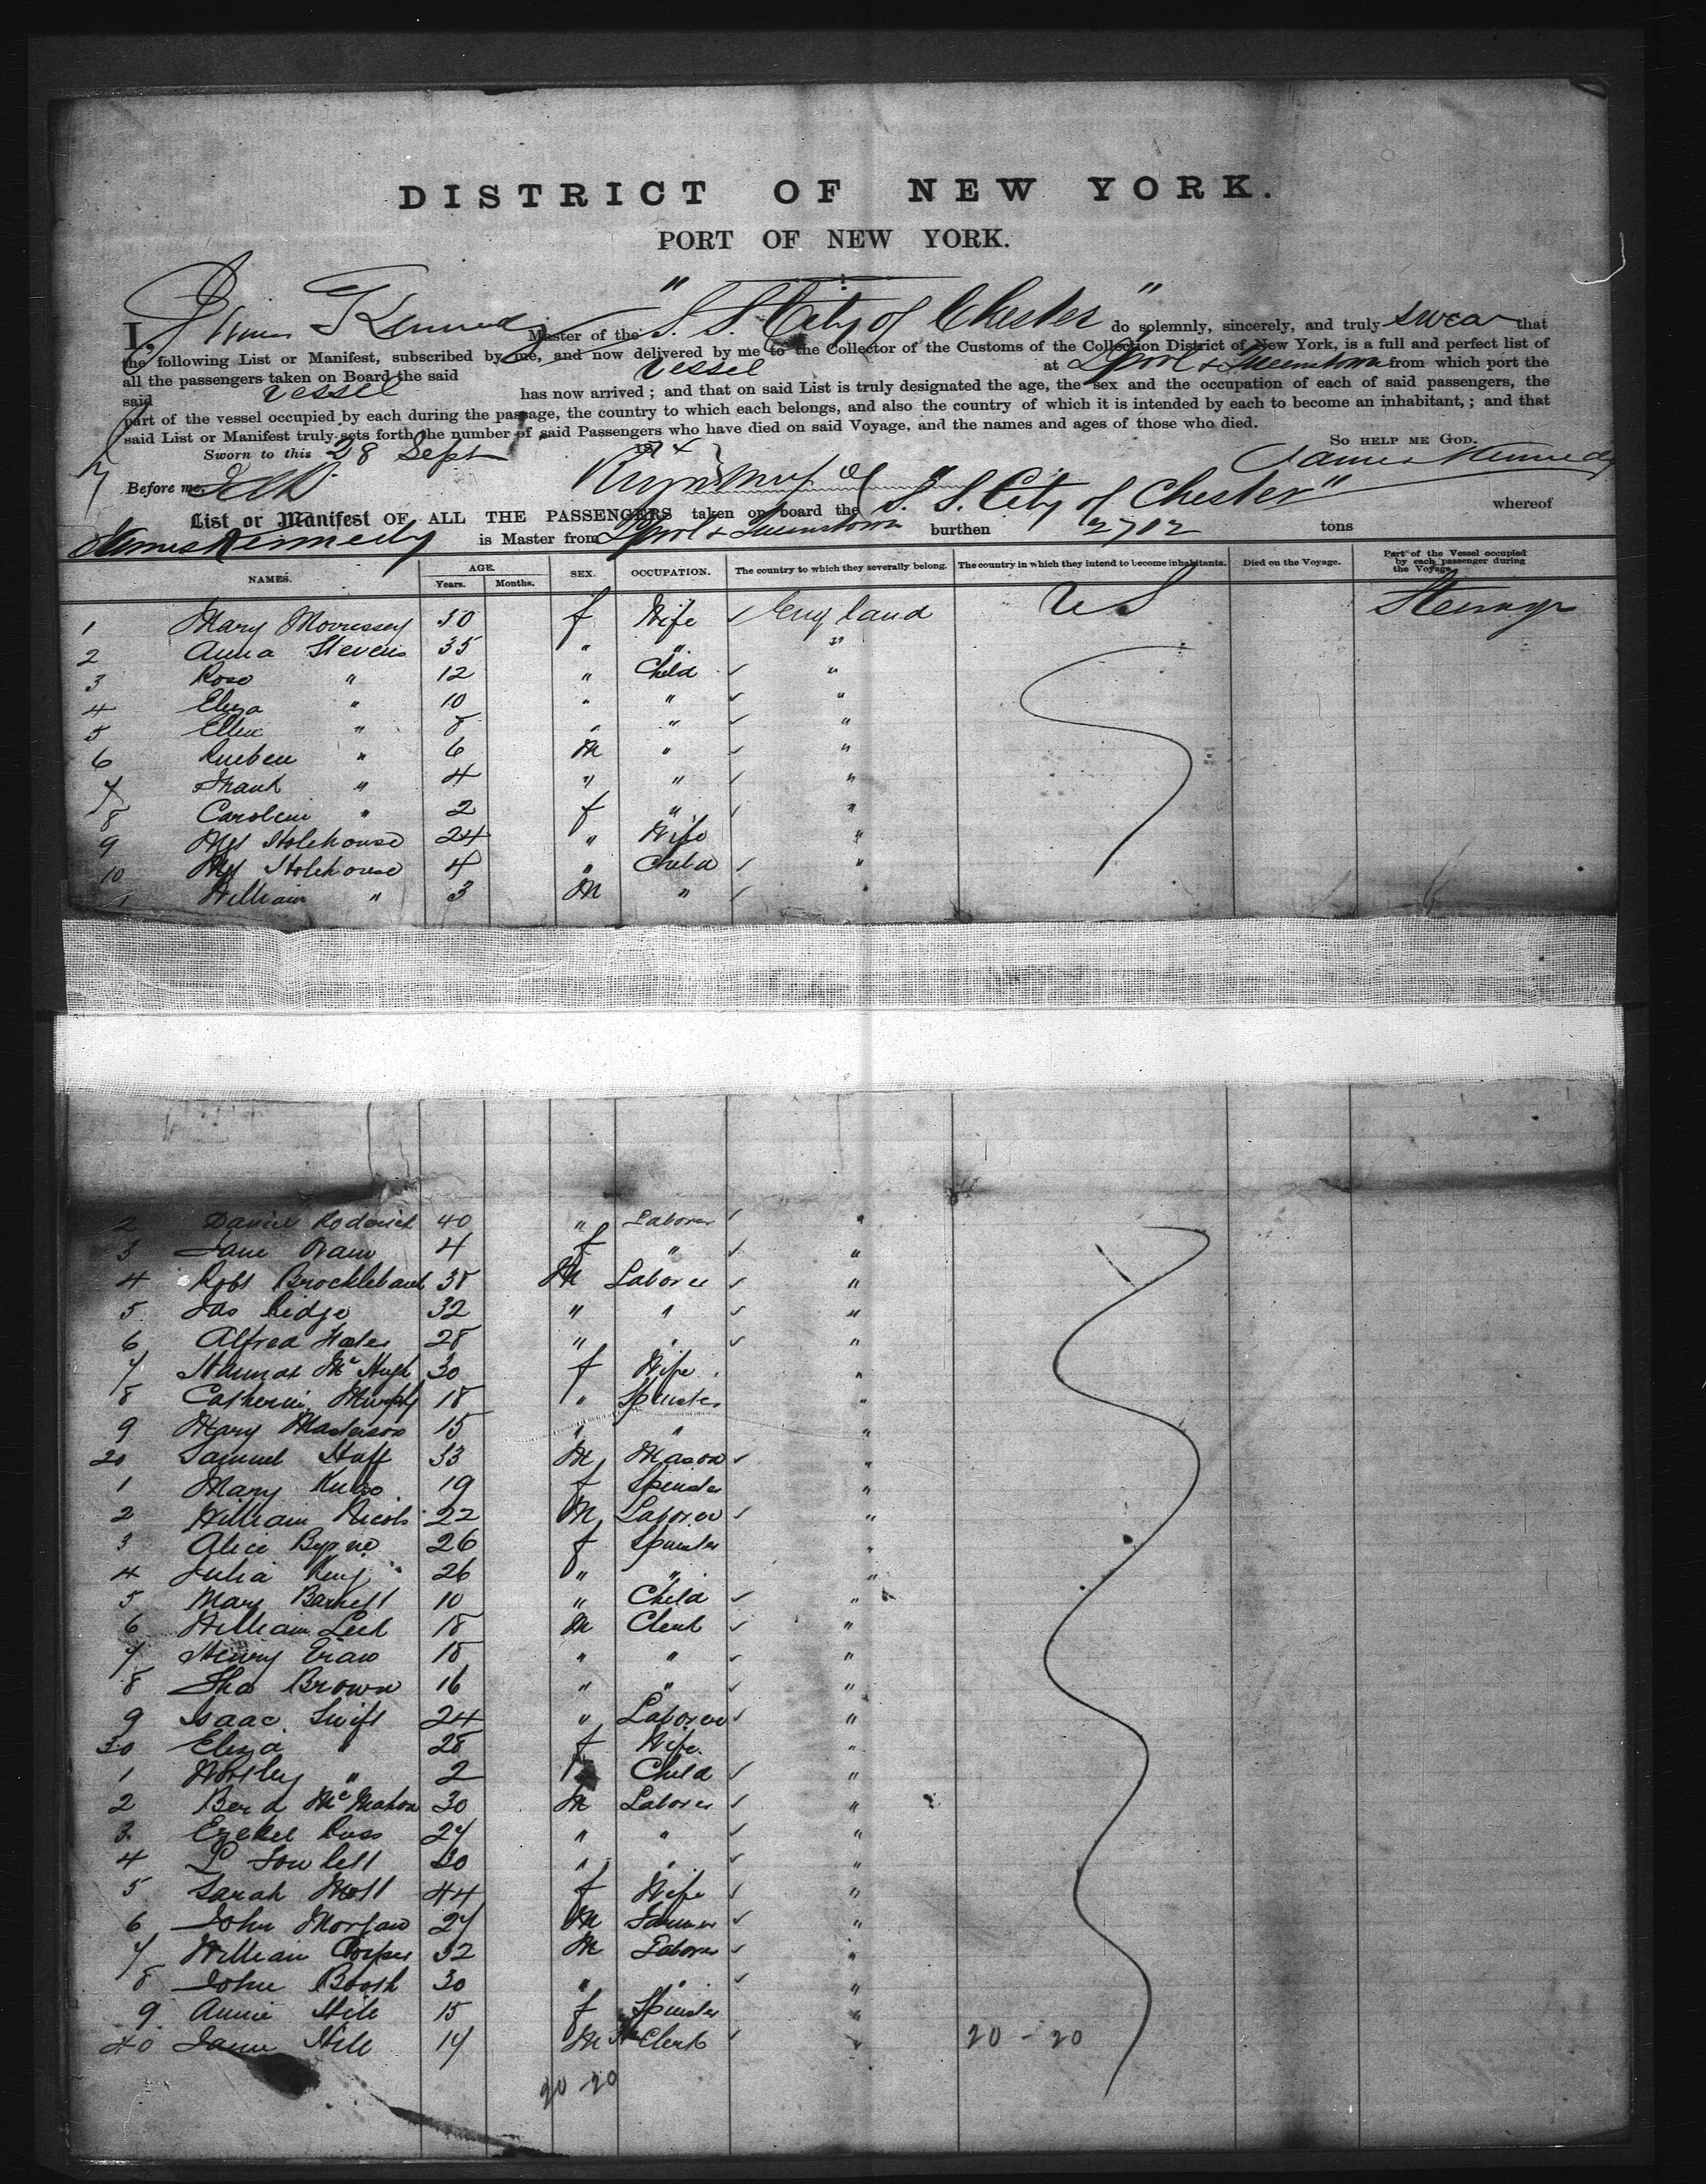 DISTRICT OF NEW YORK.
PORT OF NEW YORK.
I, James Kennedy Master of the "S. S. City of Chester" do solemnly, sincerely, and truly swear that
the following List or Manifest, subscribed by me, and now delivered by me to the Collector of the Customs of the Collection District of New York, is a full and perfect list of
all the passengers taken on Board the said Vessel at Lpool & Queenstown from which port the
said Vessel has now arrived ; and that on said List is truly designated the age, the sex and the occupation of each of said passengers, the
part of the vessel occupied by each during the passage, the country to which each belongs, and also the country of which it is intended by each to become an inhabitant, ; and that
said List or Manifest truly sets forth the number of said Passengers who have died on said Voyage, and the names and ages of those who died.
So help me God.
Sworn to this 28 Sept 1874
James Kennedy
Before me
List or Manifest OF ALL THE PASSENGERS taken on board the S. S. City of Chester" whereof
James Kennedy is Master from Lpool & Queenstown burthen 2712 tons
NAMES. AGE. Years. Months. SEX. OCCUPATION. The country to which they severally belong. The country in which they intend to become inhabitants. Died on the Voyage. Part of the Vessel occupied by each passenger during the Voyage.
1 Mary Morrissey 50 f Wife England US Steerage
2 Anna Stevens 35 " " "
3 Rose " 12 " Child "
4 Eliza " 10 " " "
5 Ellen " 8 " " "
6 Rueben " 6 M " "
7 Frank " 4 " " "
8 Carolein " 2 f " "
9 Mrs Stolehouse 24 " Wife "
10 Stolehouse 4 " Child "
1 William " 3 M " "
2 Daniel Roderick 40 " Laborer "
3 Jane 4 f " "
4 Robt Brocklebank 38 M Laborer "
5 Jas Lidge 32 " " "
6 Alfred Hales 28 " " "
7 Hannah McHugh 30 f Wife "
8 Catherine Murphy 18 " Spinster "
9 Mary Masterson 15 " " "
20 Samuel Huff 33 M Mason "
1 Mary 19 f Spinster "
2 William Nicols 22 M Laborer "
3 Alice Byrne 26 f Spinster "
4 Julia King 26 " " "
5 Mary Barnett 10 " Child "
6 William Leek 18 M Clerk "
7 Henry 18 " " "
8 Tho Brown 16 " " "
9 Isaac Swift 24 " Laborer "
30 Eliza " 28 f Wife "
1 Wortley " 2 Child "
2 Bernd McMahon 30 M Laborer "
3 Ezekel Russ 27 " " "
4 L 30 " " "
5 Sarah Mott 44 f Wife "
6 John Morgan 27 M Farmer "
7 William 32 M Laborer "
8 John Booth 30 " " "
9 Annie Hill 15 f Spinster "
40 Jame Hill 14 M Clerk " 20 - 20
20 - 20